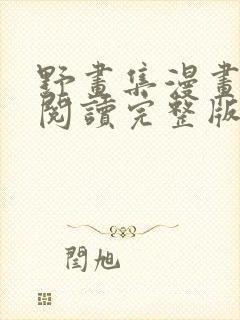 野畫集漫畫
閱讀完整版
閆旭